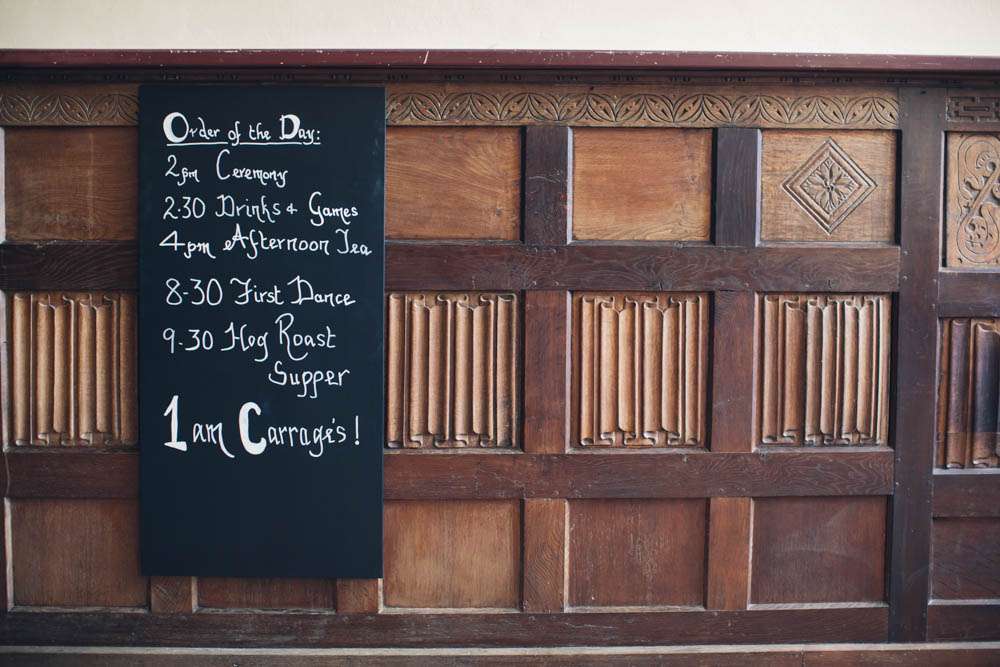 Order of the Day:
2pm Ceremony
2.30 Drinks + Games
4pm Afternoon Tea
8-30 First Dance
9.30 Hog Roast
Supper
1am Carrage's!